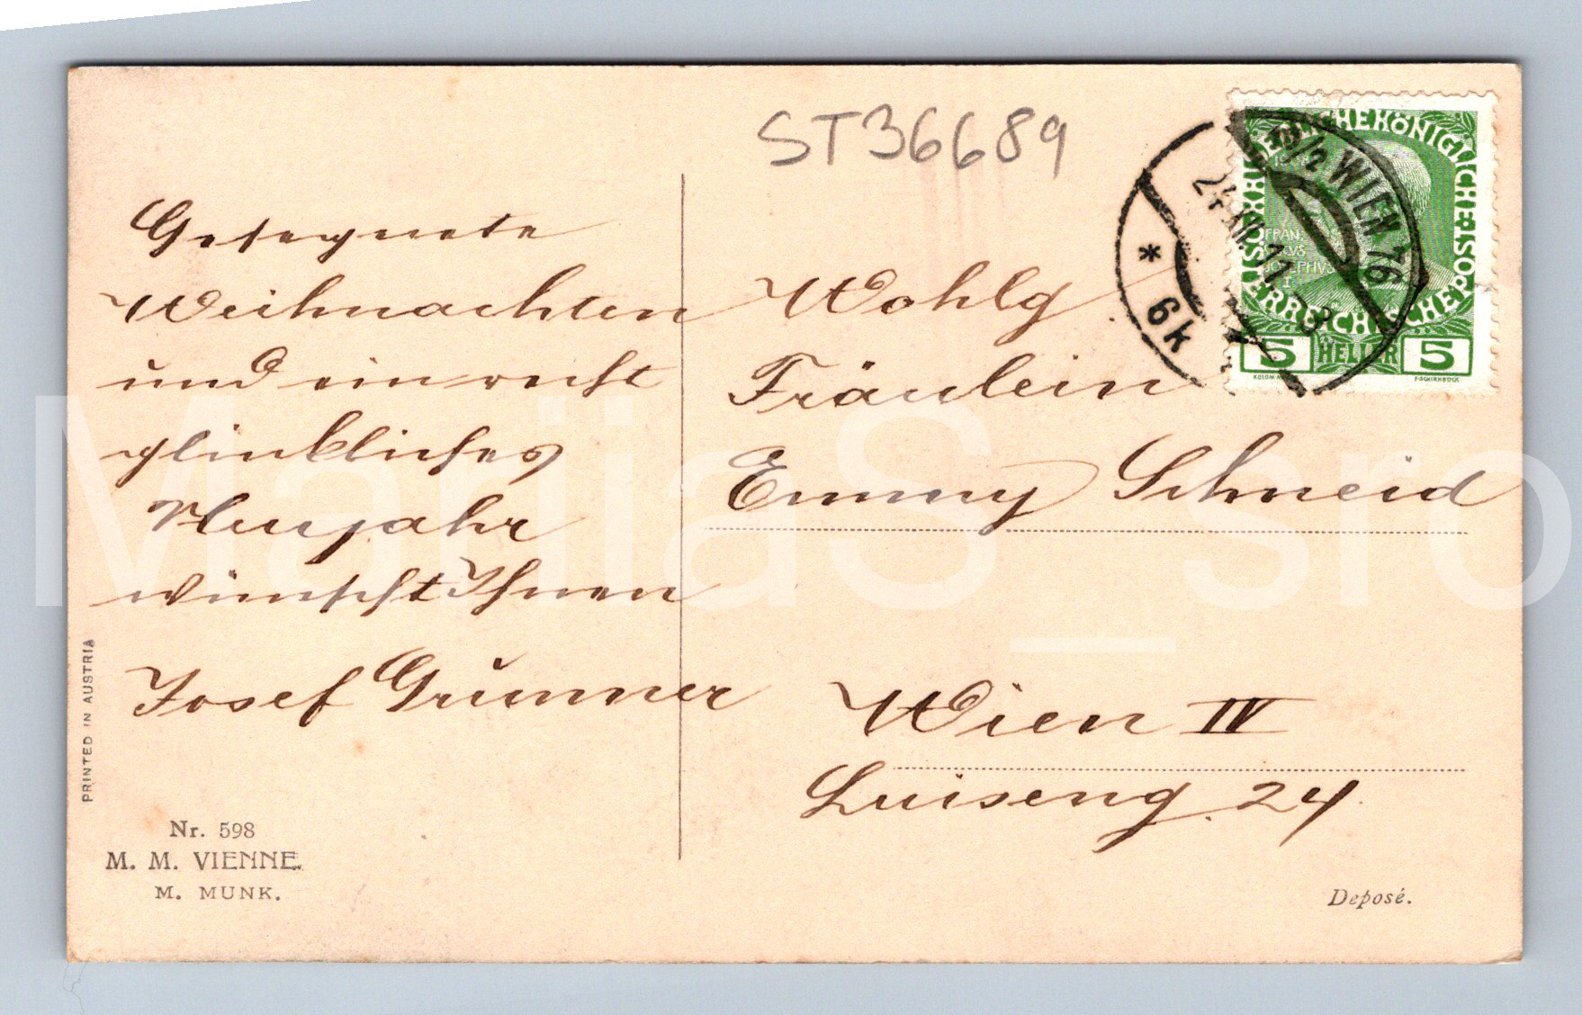 ST36689
Gesegnete
Weihnachten
und ein recht
glückliches
Neujahr
wünscht Ihnen
Josef Grünner
Wohlg
Fräulein
Emmy Schneid
Wien IV
Luiseng. 24
WIEN 76
24.XII.11
* 6k
KAISERLICHE KÖNIGLICHE ÖSTERREICHISCHE POST
5 HELLER 5
PRINTED IN AUSTRIA
Nr. 598
M. M. VIENNE
M. MUNK.
Deposé.
MariiaS_sro